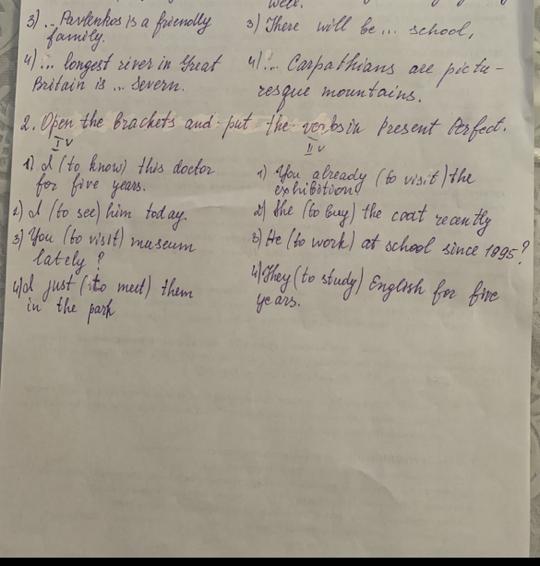 well.
3) ... Pavlenkos is a friendly
family.
4) ... longest river in Great
Britain is ... Severn.
3) There will be ... school,
4) ... Carpathians are pictu-
resque mountains.
2. Open the brackets and put the verbs in Present Perfect.
I v
1) I (to know) this doctor
for five years.
2) I (to see) him today.
3) You (to visit) museum
lately?
4) I just (to meet) them
in the park
II v
1) You already (to visit) the
exhibition
2) She (to buy) the coat recently
3) He (to work) at school since 1995?
4) They (to study) English for five
years.